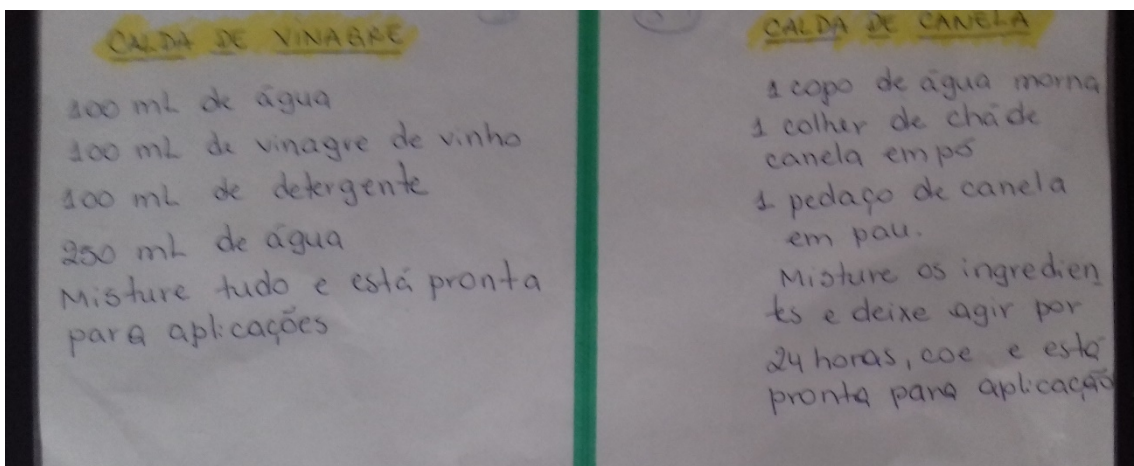 CALDA DE VINAGRE
100 mL de água
100 mL de vinagre de vinho
100 mL de detergente
250 mL de água
Misture tudo e está pronta
para aplicações
CALDA DE CANELA
1 copo de água morna
1 colher de chá de
canela em pó
1 pedaço de canela
em pau.
Misture os ingredien
tes e deixe agir por
24 horas, coe e está
pronta para aplicação